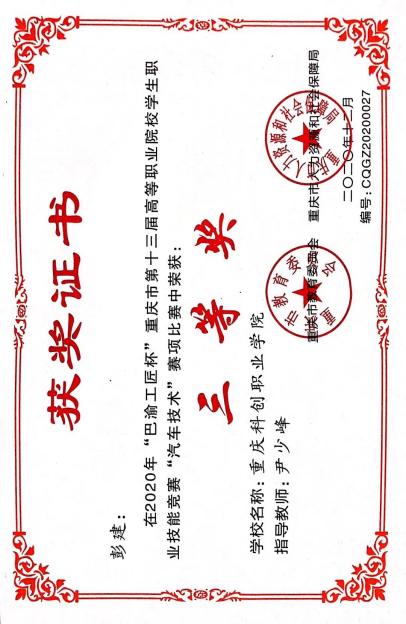 获奖证书
彭建：
在2020年“巴渝工匠杯”重庆市第十三届高等职业院校学生职
业技能竞赛“汽车技术”赛项比赛中荣获：
三等奖
学校名称：重庆科创职业学院
指导教师：尹少峰
重庆市教育委员会 重庆市人力资源和社会保障局
二〇二〇年十二月
编号：CQGZ20200027